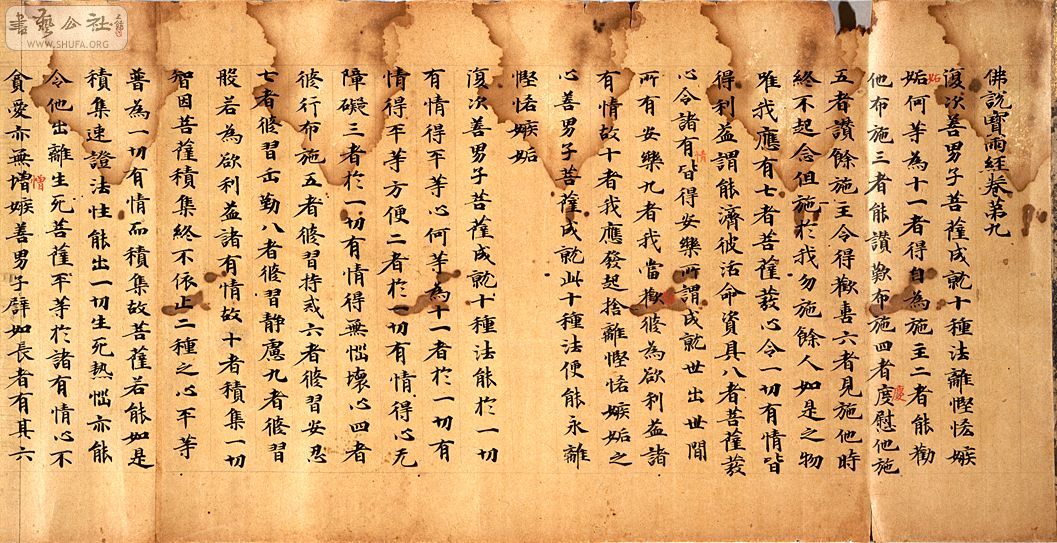 書藝公社
WWW.SHUFA.ORG
佛說寶雨經卷第九
復次善男子菩薩成就十種法離慳悋嫉
妬何等為十一者得自為施主二者能勸
妬
他布施三者能讚歎布施四者度慰他施
慶
五者讚餘施主令得歡喜六者見施他時
終不起念但施於我勿施餘人如是之物
唯我應有七者菩薩發心令一切有情皆
得利益謂能濟彼活命資具八者菩薩發
心令諸有皆得安樂所謂成就世出世間
情
所有安樂九者我當歡彼為欲利益諸
有情故十者我應發起捨離慳悋嫉妬之
心善男子菩薩成就此十種法便能永離
慳悋嫉妬
復次善男子菩薩成就十種法能於一切
有情得平等心何等為十一者於一切有
情得平等方便二者於一切有情得心无
障礙三者於一切有情得無惱壞心四者
修行布施五者修習持戒六者修習安忍
七者修習正勤八者修習靜慮九者修習
般若為欲利益諸有情故十者積集一切
智因菩薩積集終不依止二種之心平等
普為一切有情而積集故菩薩若能如是
積集速證法性能出一切生死熱惱亦能
令他出離生死菩薩平等於諸有情心不
憎
貪愛亦無増嫉善男子辟如長者有其六